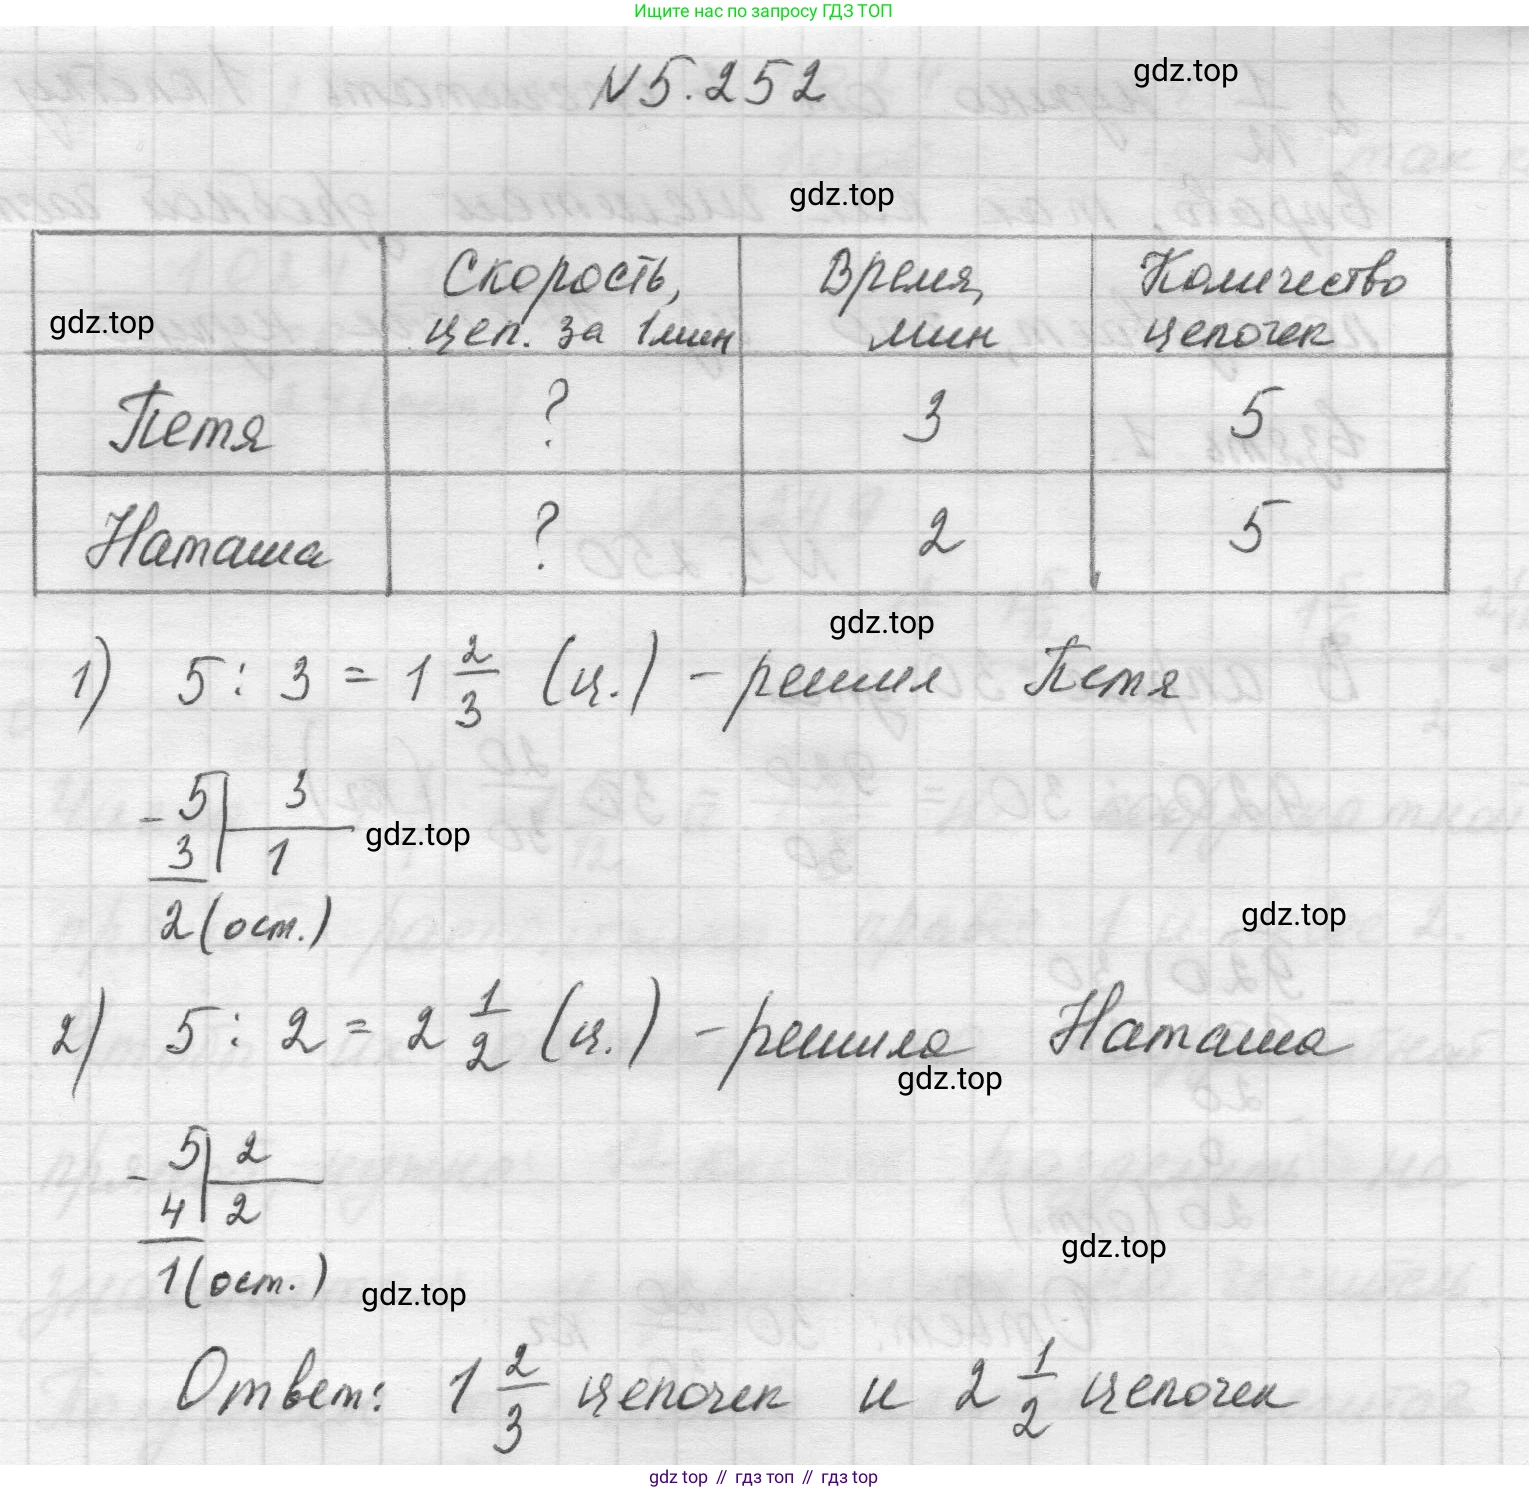 Ищите нас по запросу ГДЗ ТОП
N5.252
gdz.top
gdz.top
Скорость, Время, Количество
gdz.top
цеп. за 1мин мин цепочек
Петя ? 3 5
Наташа ? 2 5
gdz.top
1) 5 : 3 = 1 2/3 (ц.) - решил Петя
- 5 3
gdz.top
3 1
2 (ост.)
gdz.top
2) 5 : 2 = 2 1/2 (ц.) - решила Наташа
gdz.top
- 5 2
4 2
gdz.top
1 (ост.)
gdz.top
Ответ: 1 2/3 цепочек и 2 1/2 цепочек
gdz top // гдз топ // гдз top